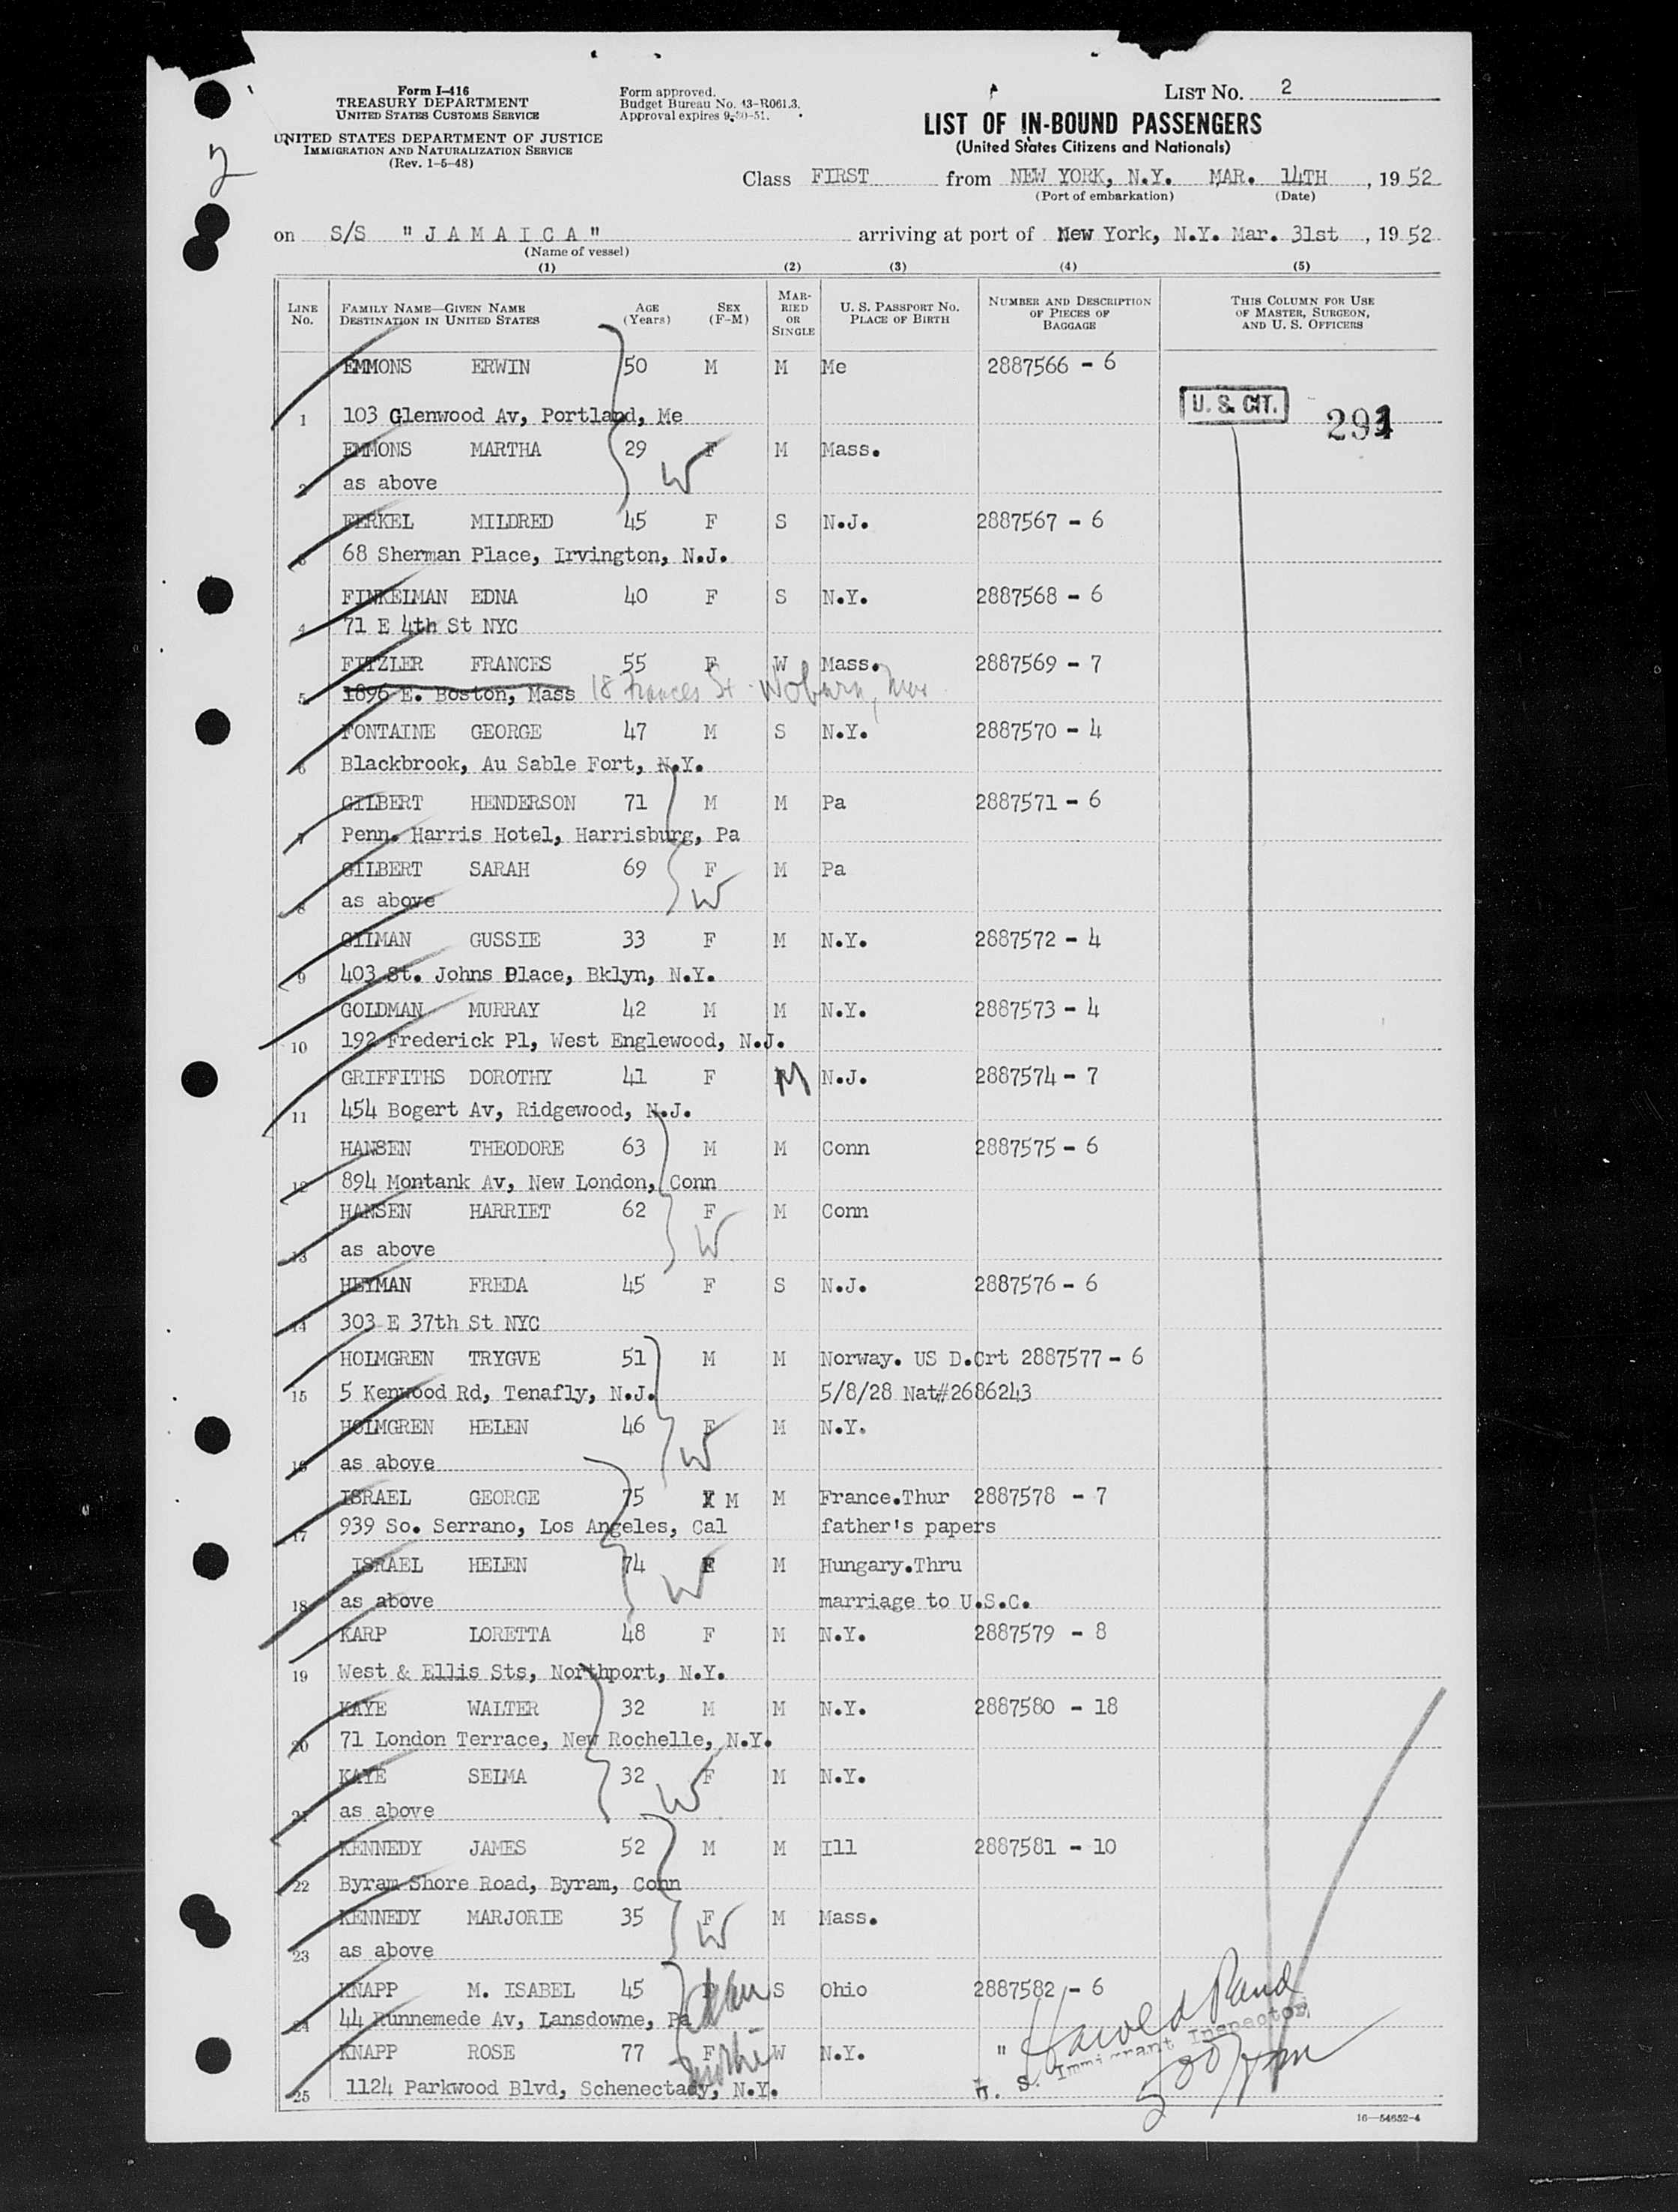 Form I-416
TREASURY DEPARTMENT
UNITED STATES CUSTOMS SERVICE
UNITED STATES DEPARTMENT OF JUSTICE
IMMIGRATION AND NATURALIZATION SERVICE
(Rev. 1-5-48)
Form approved.
Budget Bureau No. 43-R061.3.
Approval expires 9-30-51.
LIST NO. 2
LIST OF IN-BOUND PASSENGERS
(United States Citizens and Nationals)
2
Class FIRST from NEW YORK, N.Y. MAR. 14TH, 1952
(Port of embarkation) (Date)
on S/S "JAMAICA" arriving at port of New York, N.Y. Mar. 31st, 1952
(Name of vessel)
(1) (2) (3) (4) (5)
LINE No. FAMILY NAME—GIVEN NAME DESTINATION IN UNITED STATES AGE (Years) SEX (F-M) MARRIED OR SINGLE U. S. PASSPORT NO. PLACE OF BIRTH NUMBER AND DESCRIPTION OF PIECES OF BAGGAGE THIS COLUMN FOR USE OF MASTER, SURGEON, AND U. S. OFFICERS
EMMONS ERWIN 50 M M Me 2887566 - 6
1 103 Glenwood Av, Portland, Me U. S. CIT. 291
EMMONS MARTHA 29 F W M Mass.
2 as above
FERKEL MILDRED 45 F S N.J. 2887567 - 6
3 68 Sherman Place, Irvington, N.J.
FINKELMAN EDNA 40 F S N.Y. 2887568 - 6
4 71 E 4th St NYC
FITZLER FRANCES 55 F W Mass. 2887569 - 7
5 1896 E. Boston, Mass 18 Frances St. Woburn, Mass
FONTAINE GEORGE 47 M S N.Y. 2887570 - 4
6 Blackbrook, Au Sable Fort, N.Y.
GILBERT HENDERSON 71 M M Pa 2887571 - 6
7 Penn. Harris Hotel, Harrisburg, Pa
GILBERT SARAH 69 F W M Pa
8 as above
GILMAN GUSSIE 33 F M N.Y. 2887572 - 4
9 403 St. Johns Place, Bklyn, N.Y.
GOLDMAN MURRAY 42 M M N.Y. 2887573 - 4
10 192 Frederick Pl, West Englewood, N.J.
GRIFFITHS DOROTHY 41 F M N.J. 2887574 - 7
11 454 Bogert Av, Ridgewood, N.J.
HANSEN THEODORE 63 M M Conn 2887575 - 6
12 894 Montank Av, New London, Conn
HANSEN HARRIET 62 F W M Conn
13 as above
HEYMAN FREDA 45 F S N.J. 2887576 - 6
14 303 E 37th St NYC
HOLMGREN TRYGVE 51 M M Norway. US D.Crt 2887577 - 6
15 5 Kenwood Rd, Tenafly, N.J. 5/8/28 Nat#2686243
HOLMGREN HELEN 46 F W M N.Y.
16 as above
ISRAEL GEORGE 75 M M France.Thur 2887578 - 7
17 939 So. Serrano, Los Angeles, Cal father's papers
ISRAEL HELEN 74 F W M Hungary.Thru
18 as above marriage to U.S.C.
KARP LORETTA 48 F M N.Y. 2887579 - 8
19 West & Ellis Sts, Northport, N.Y.
KAYE WALTER 32 M M N.Y. 2887580 - 18
20 71 London Terrace, New Rochelle, N.Y.
KAYE SELMA 32 F W M N.Y.
21 as above
KENNEDY JAMES 52 M M Ill 2887581 - 10
22 Byram Shore Road, Byram, Conn
KENNEDY MARJORIE 35 F W M Mass.
23 as above
KNAPP M. ISABEL 45 F S Ohio 2887582 - 6
24 44 Runnemede Av, Lansdowne, Pa
KNAPP ROSE 77 F W N.Y. "
25 1124 Parkwood Blvd, Schenectady, N.Y.
Harold Rand
U. S. Immigrant Inspector
16—54652-4